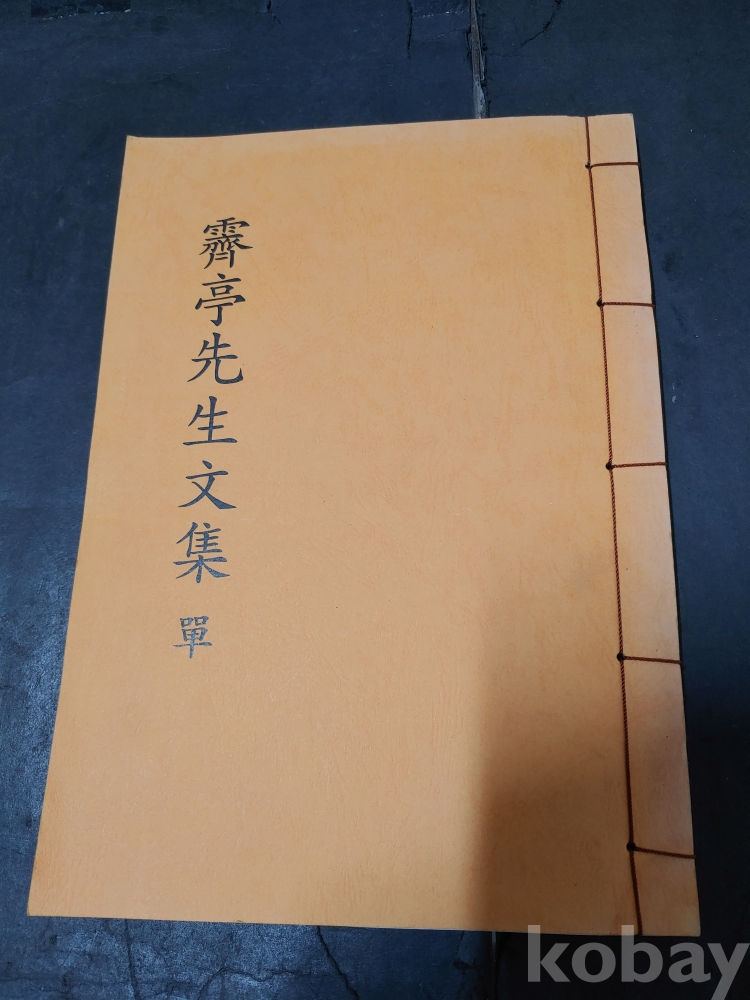 霽亭先生文集 單
kobay